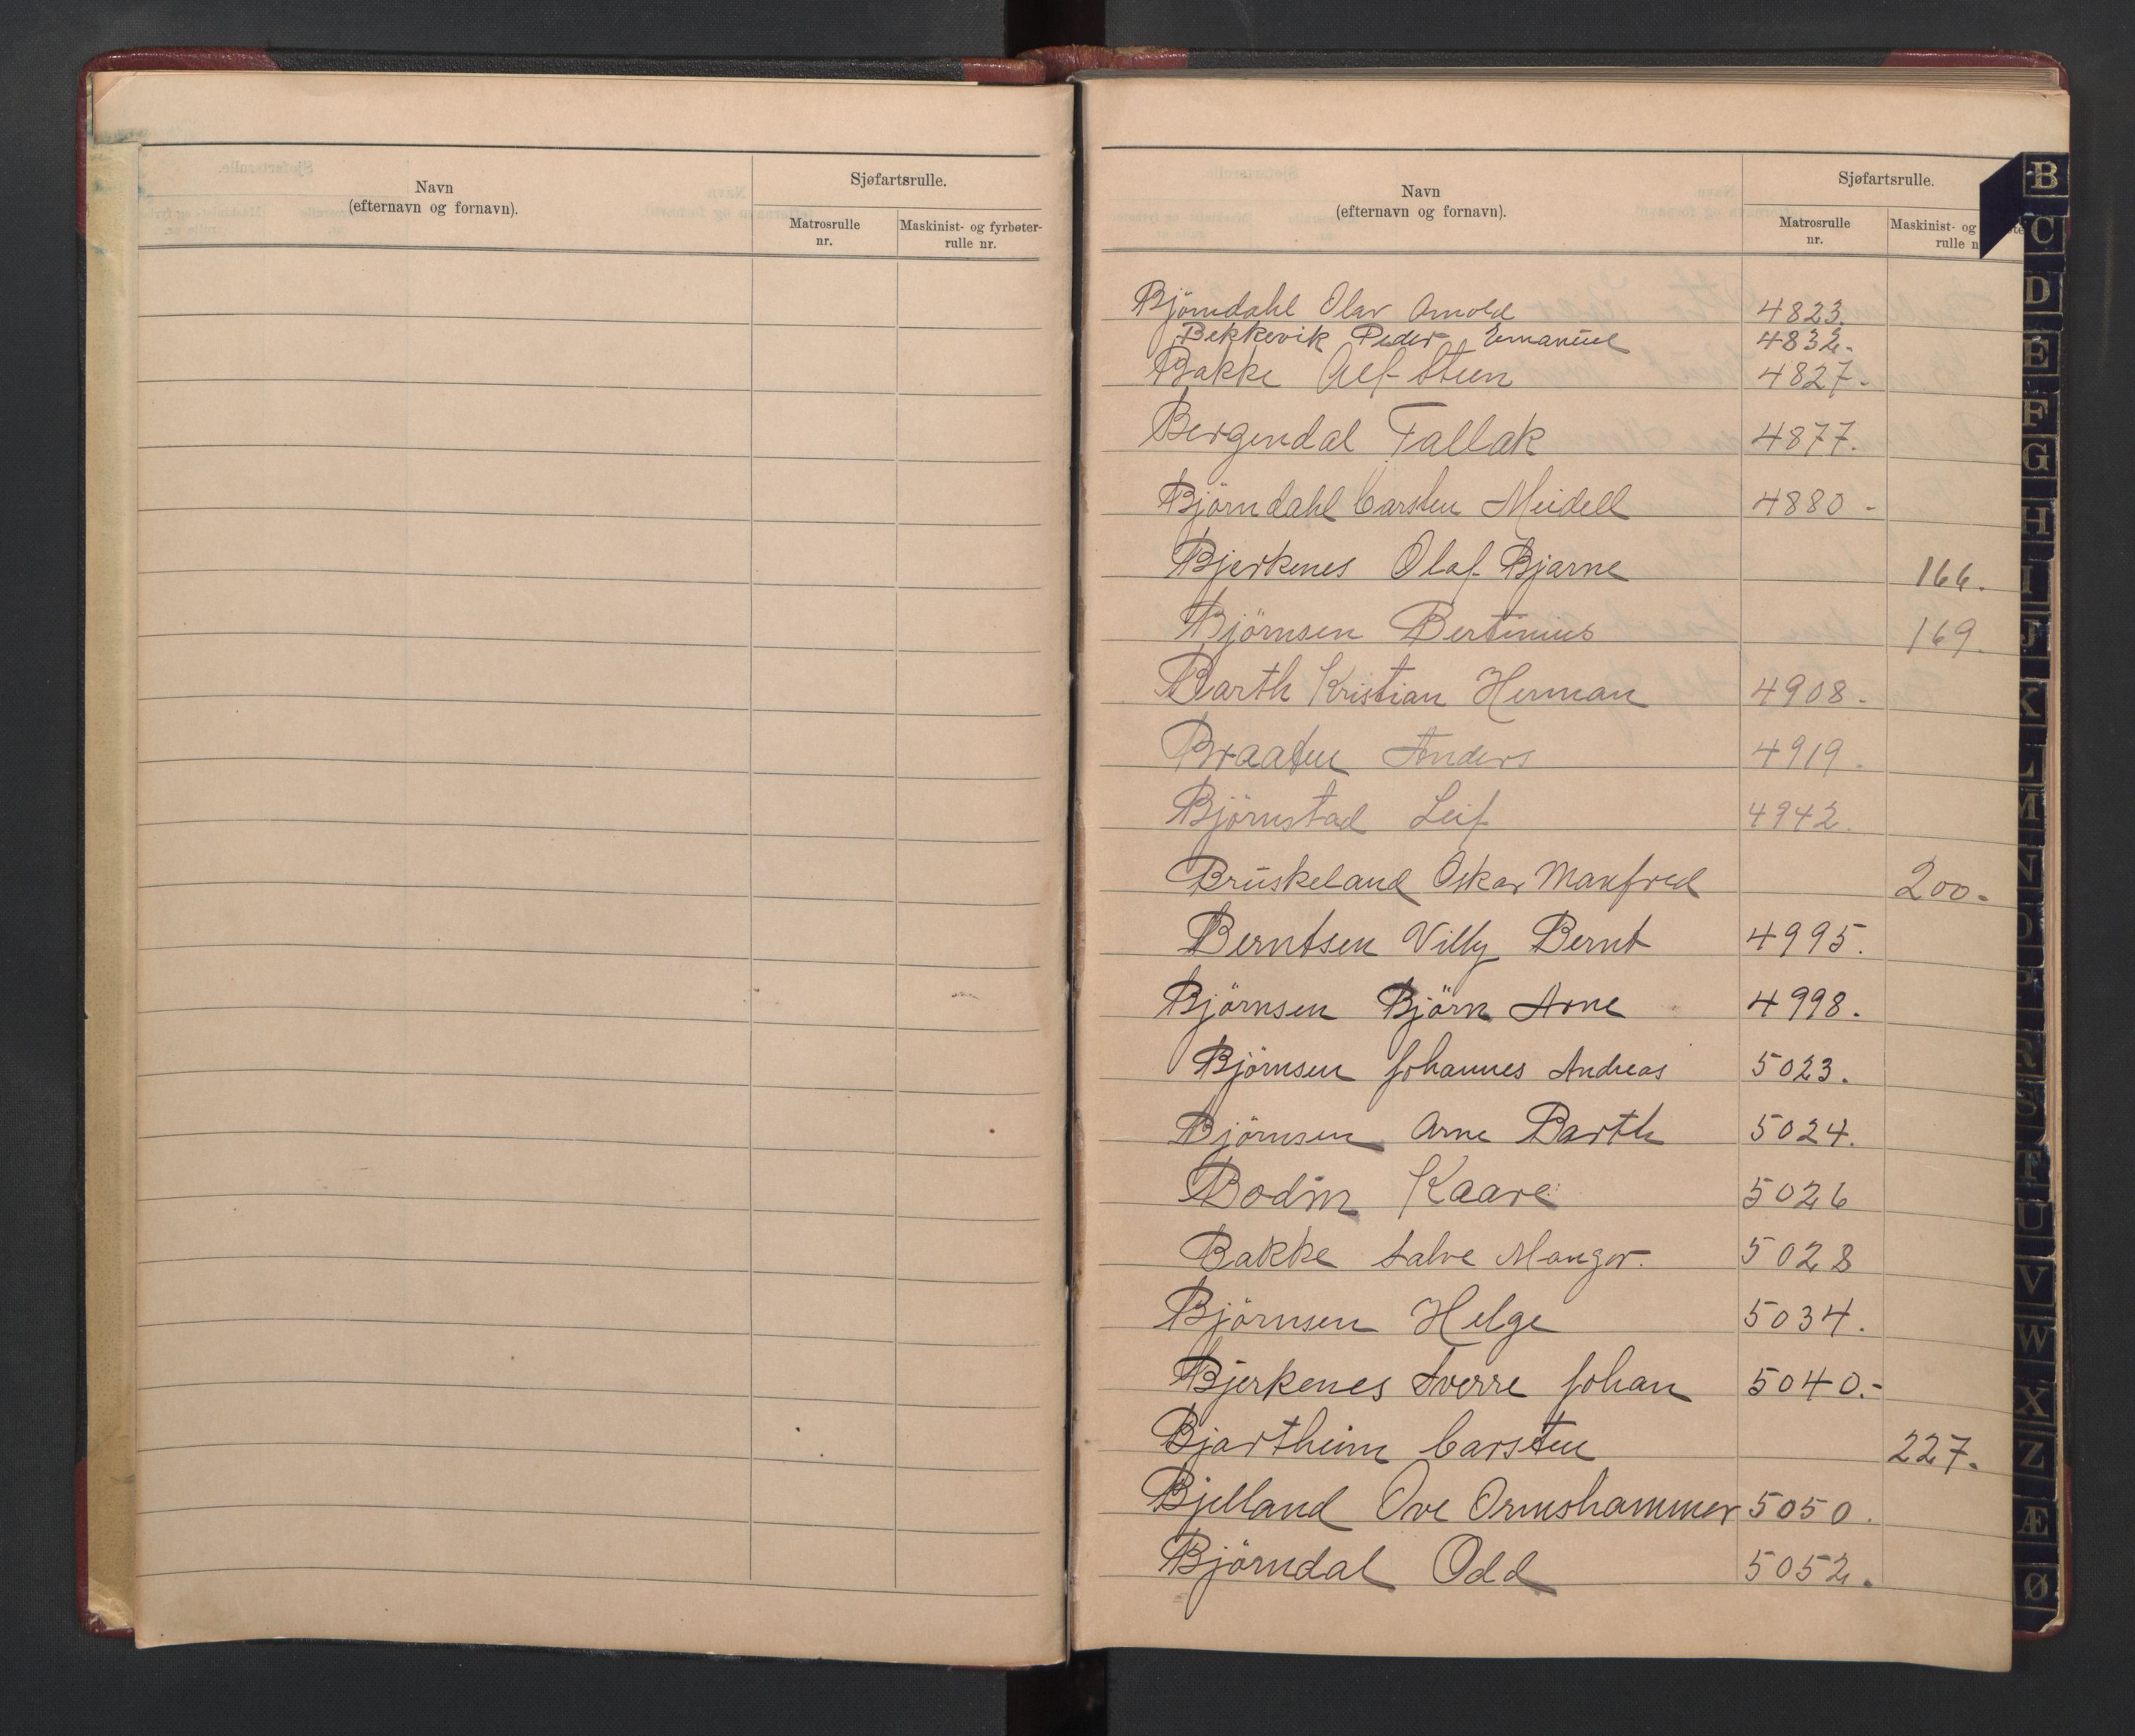 Navn
(efternavn og fornavn).
Sjøfartsrulle.
Matrosrulle
nr.
Maskinist- og fyrbøter-
rulle nr.
Navn
(efternavn og fornavn).
Sjøfartsrulle.
Matrosrulle
nr.
Maskinist- og
rulle n
Björndahl Olav Arnold 4823.
Bekkevik Peder Emanuel 4832.
Bakke Alf Steen 4827.
Bergendal Tallak 4877.
Björndahl Carsten Meidell 4880 -
Bjerkenes Olaf Bjarne 166.
Björnsen Bertinius 169.
Barth Kristian Herman 4908.
Braaten Anders 4919.
Björnstad Leif 4942.
Bruskeland Oskar Manfred 200.
Berntsen Villy Bernt 4995.
Björnsen Björn Arne 4998.
Björnsen Johannes Andreas 5023.
Björnsen Arne Barth 5024.
Bodin Kaare 5026
Bakke Salve Mangor. 5028
Björnsen Helge 5034.
Bjerkenes Sverre Johan 5040.-
Bjartheim Carsten 227.
Bjelland Ove Ormshammer 5050.
Björndal Odd 5052.
B
C
D
E
F
G
H
I
J
K
L
M
N
O
P
T
U
V
W
X
Z
Æ
Ø